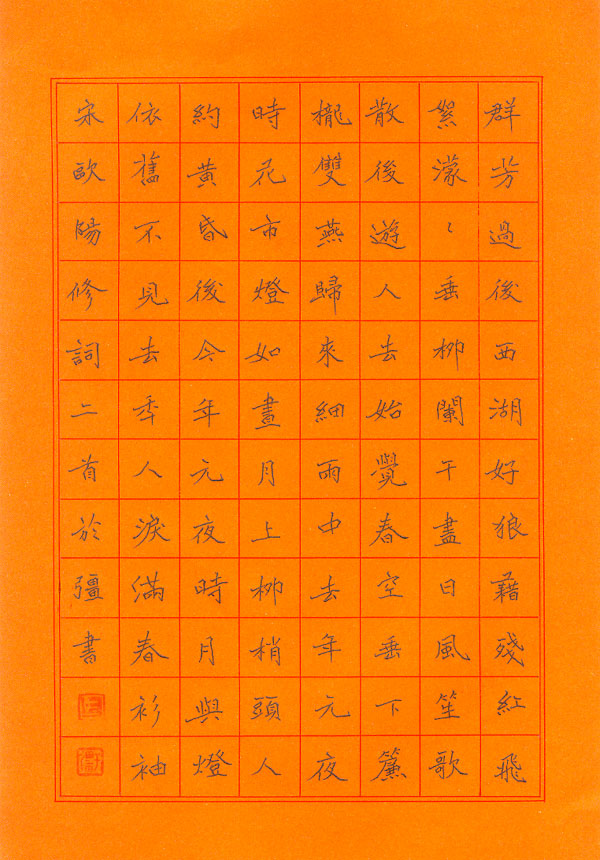 群芳過後西湖好狼藉殘紅飛
絮濛〻垂柳闌干盡日風笙歌
散後遊人去始覺春空垂下簾
櫳雙燕歸來細雨中去年元夜
時花市燈如晝月上柳梢頭人
約黃昏後今年元夜時月與燈
依舊不見去季人淚滿春衫袖
宋歐陽修詞二首於彊書